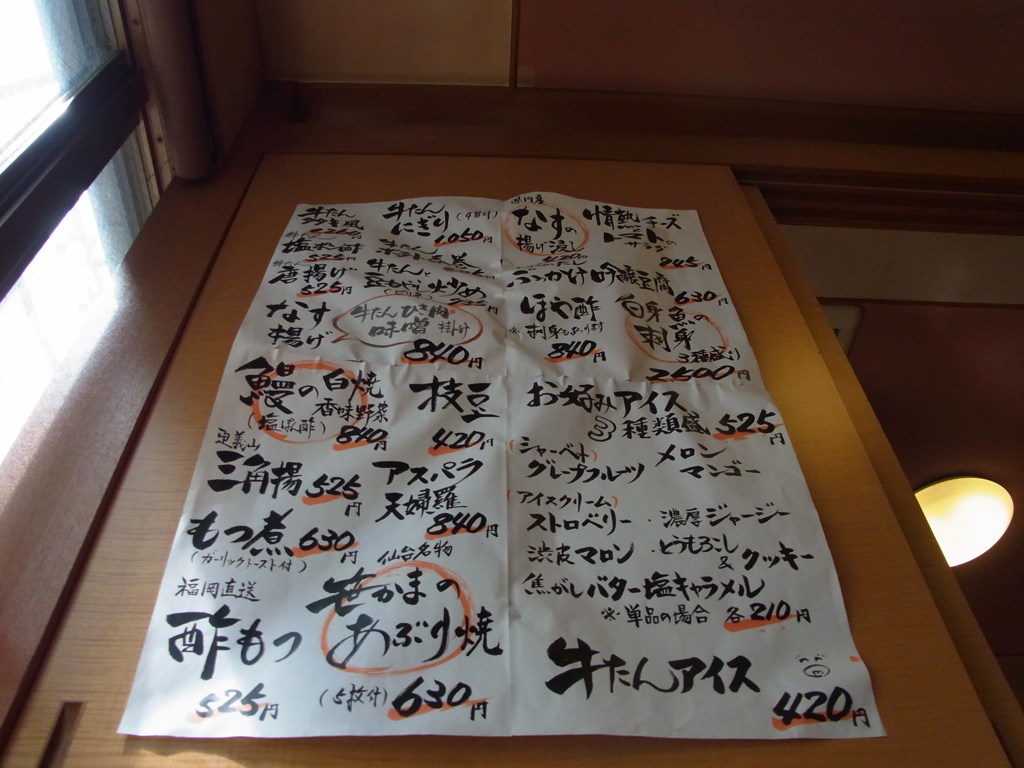 牛たん
牛たん
にぎり(4貫付)
1,050円
塩ポン酢
525円
唐揚げ
525円
牛たんと
炒め
なす
揚げ
牛たんひき肉
味噌掛け
840円
鰻の白焼
香味野菜
(塩ぽん酢)
840円
枝豆
420円
定義山
三角揚
525円
アスパラ
天婦羅
840円
もつ煮
630円
(ガーリックトースト付)
福岡直送
酢もつ
525円
仙台名物
笹かまの
あぶり焼
(5枚付)630円
なすの
揚げ浸し
420円
情熱
トマトの
チーズ
945円
ぶっかけ吟醸豆腐
630円
ほや酢
※刺身もあります
840円
白身魚の
刺身
3種盛り
2500円
お好みアイス
3種類盛 525円
(シャーベット)
グレープフルーツ
メロン
マンゴー
(アイスクリーム)
ストロベリー
・濃厚ジャージー
渋皮マロン
・とうもろこし
&クッキー
焦がしバター塩キャラメル
※単品の場合 各210円
牛たんアイス
420円